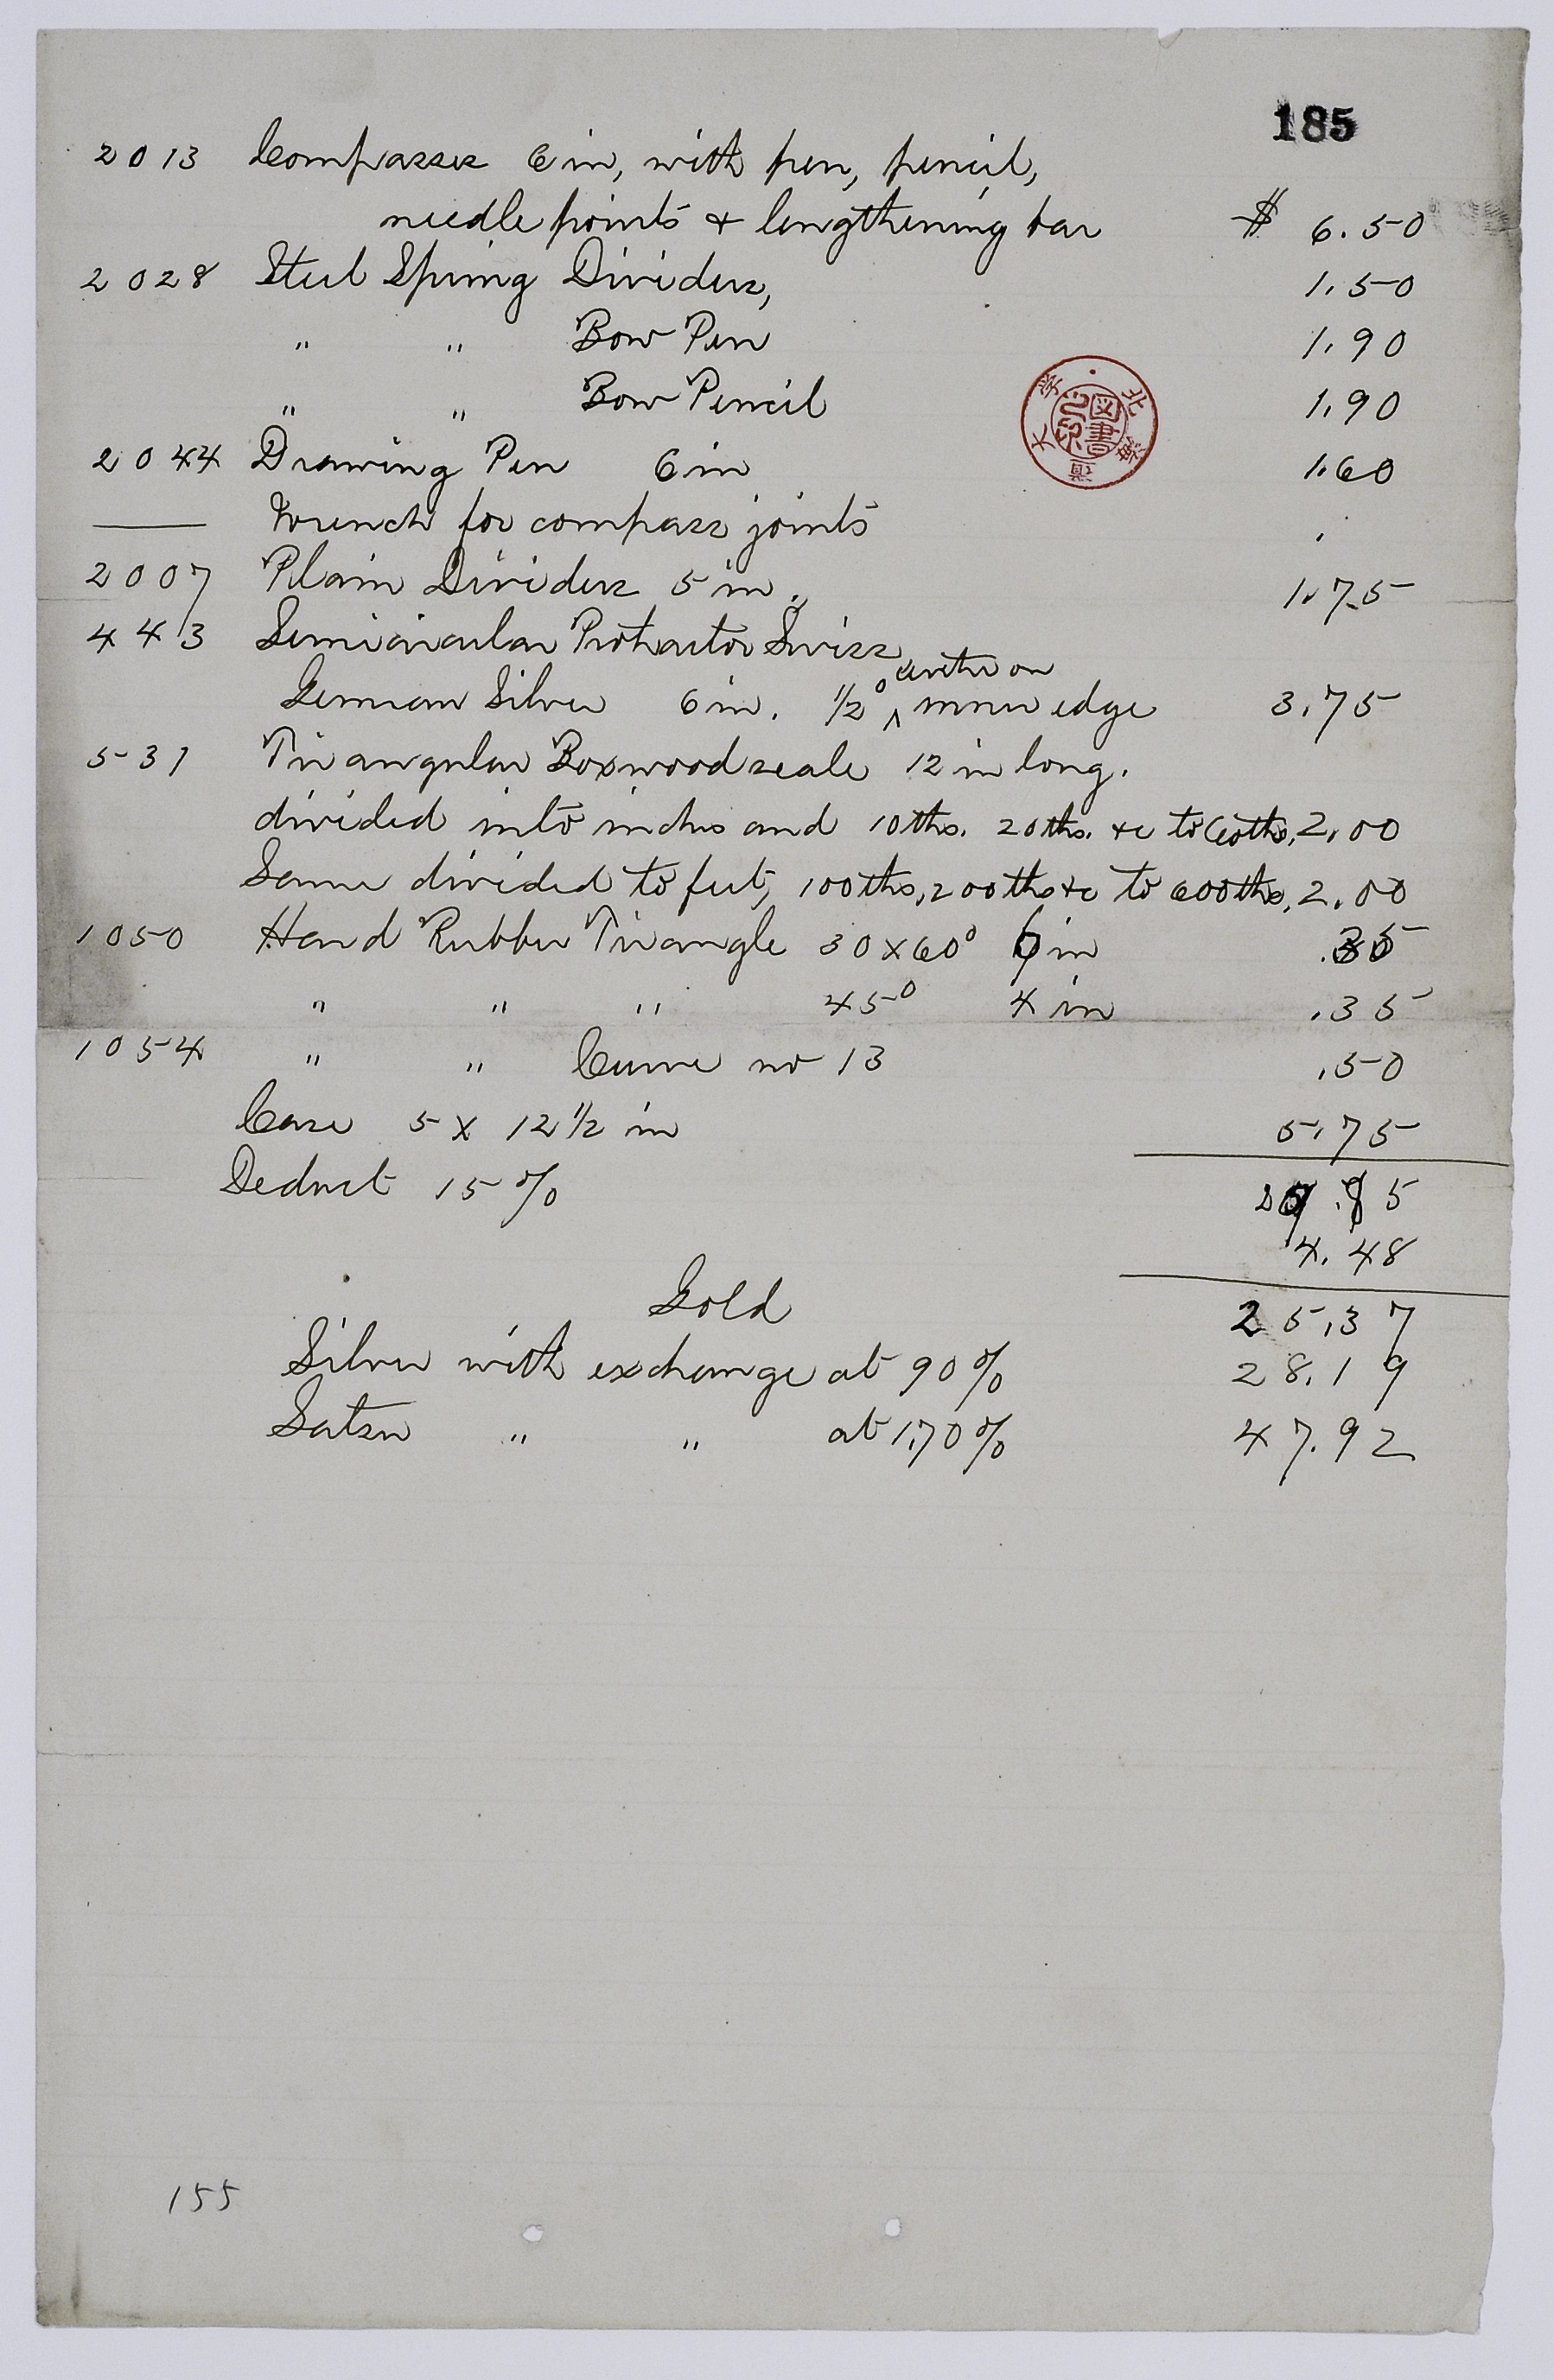 185
2013 Compasses 6 in, with pen, pencil,
needle points & lengthening bar $ 6.50
2028 Steel Spring Dividers, 1.50
" " Bow Pen 1.90
" " Bow Pencil 1.90
北海道大学
図書之印
2044 Drawing Pen 6 in 1.60
—— Wrench for compass joints .
2007 Plain Dividers 5 in. 1.75
443 Semicircular Protractor Swiss
German Silver 6 in. 1/2° ^ centre on inner edge 3.75
531 Triangular Boxwood scale 12 in long.
divided into inches and 10ths. 20ths. &c to 60ths, 2.00
Same divided to feet, 100ths, 200ths &c to 600ths, 2.00
1050 Hard Rubber Triangle 30x60° 6 in .35
" " " 45° 4 in .35
1054 " " Curve no 13 .50
Case 5 x 12 1/2 in 5.75
Deduct 15 % 29.85
4.48
Gold 25.37
Silver with exchange at 90 % 28.19
Satsu " " at 1,70 % 47.92
155